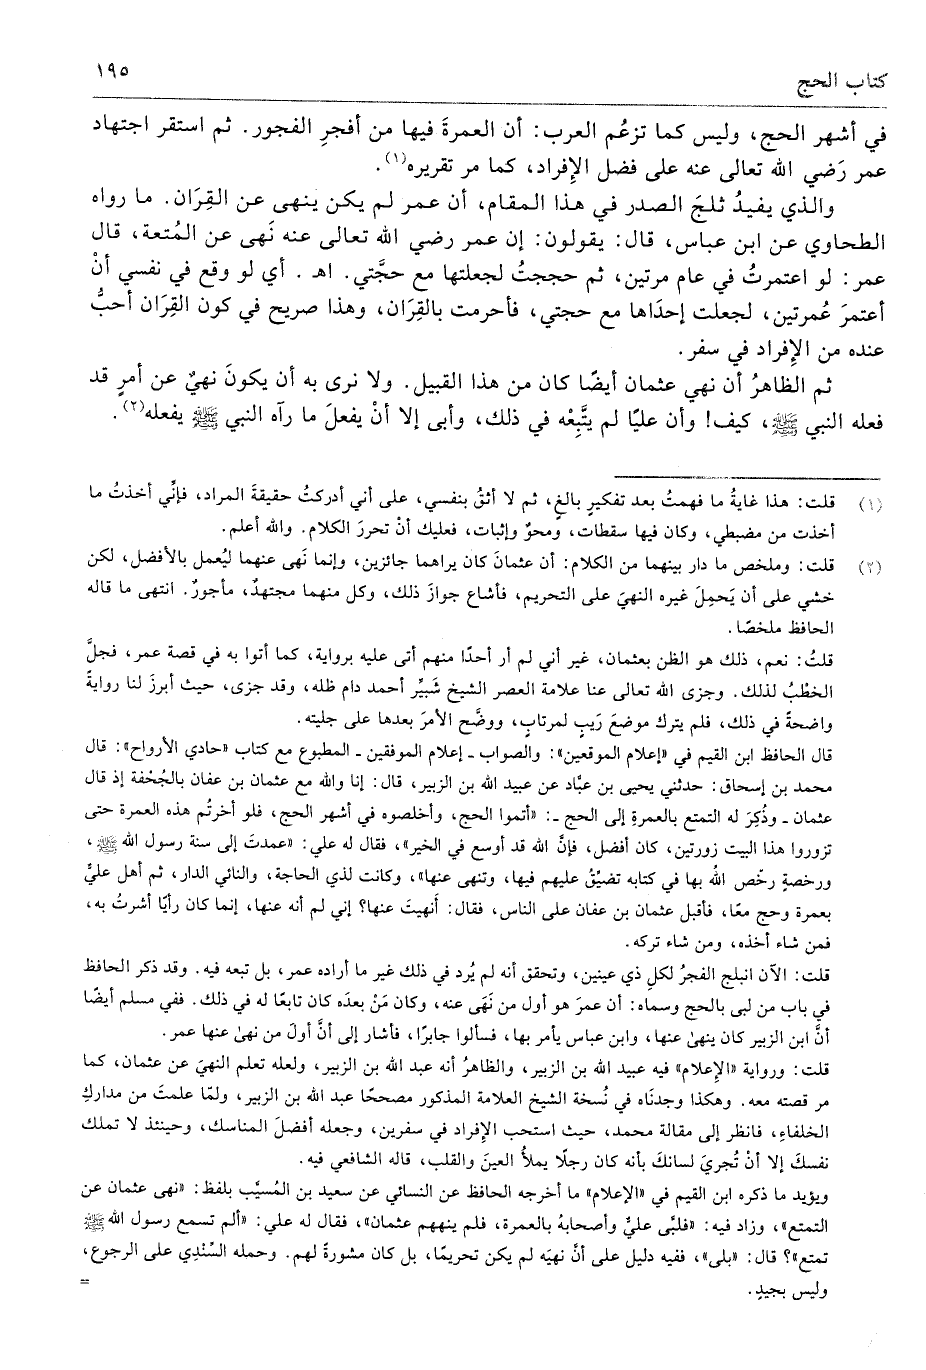 كتاب الحج
١٩٥
في أشهر الحج، وليس كما تزعُم العرب: أن العمرةَ فيها من أفجرِ الفجور. ثم استقر اجتهاد
عمر رَضي الله تعالى عنه على فضل الإفراد، كما مر تقريره(١).
والذي يفيدُ ثلجَ الصدر في هذا المقام، أن عمر لم يكن ينهى عن القِرَان. ما رواه
الطحاوي عن ابن عباس، قال: يقولون: إن عمر رضي الله تعالى عنه نَهى عن المُتعة، قال
عمر: لو اعتمرتُ في عام مرتين، ثم حججتُ لجعلتها مع حجَّتي. اهـ. أي لو وقع في نفسي أنْ
أعتمرَ عُمرتين، لجعلت إحدَاها مع حجتي، فأحرمت بالقِرَان، وهذا صريح في كون القِرَان أحبُّ
عنده من الإفراد في سفر.
ثم الظاهرُ أن نهي عثمان أيضًا كان من هذا القبيل. ولا نرى به أن يكونَ نهيٌ عن أمرٍ قد
فعله النبي ﷺ، كيف! وأن عليًا لم يتَّبِعْه في ذلك، وأبى إلا أنْ يفعلَ ما رآه النبي ﷺ يفعله(٢).
(١) قلت: هذا غايةُ ما فهمتُ بعد تفكيرٍ بالغٍ، ثم لا أثقُ بنفسي، على أني أدركتُ حقيقةَ المراد، فإنِّي أخذتُ ما
أخذت من مضبطي، وكان فيها سقطات، ومحوٌ وإثبات، فعليك أنْ تحررَ الكلام. والله أعلم.
(٢) قلت: وملخص ما دار بينهما من الكلام: أن عثمانَ كان يراهما جائزين، وإنما نَهى عنهما ليُعمل بالأفضل، لكن
خشي على أن يَحمِلَ غيره النهيَ على التحريم، فأشاع جوازَ ذلك، وكل منهما مجتهدٌ، مأجورٌ. انتهى ما قاله
الحافظ ملخصًا.
قلتُ: نعم، ذلك هو الظن بعثمان، غير أني لم أر أحدًا منهم أتى عليه برواية، كما أتوا به في قصة عمر، فجلَّ
الخطْبُ لذلك. وجزى الله تعالى عنا علامة العصر الشيخ شَبيِّر أحمد دام ظله، وقد جزى، حيث أبرزَ لنا روايةً
واضحةً في ذلك، فلم يترك موضعَ رَيبٍ لمرتاب، ووضَّح الأمرَ بعدها على جليته.
قال الحافظ ابن القيم في «إعلام الموقعين»: والصواب ـ إعلام الموفقين ـ المطبوع مع كتاب «حادي الأرواح»: قال
محمد بن إسحاق: حدثني يحيى بن عبَّاد عن عبيد الله بن الزبير، قال: إنا والله مع عثمان بن عفان بالجُحْفة إذ قال
عثمان ـ وذُكِرَ له التمتع بالعمرةِ إلى الحج ـ: «أتموا الحج، وأخلصوه في أشهر الحج، فلو أخرتُم هذه العمرة حتى
تزوروا هذا البيت زورتين، كان أفضل، فإنَّ الله قد أوسع في الخير»، فقال له علي: «عمدتَ إلى سنة رسول الله ﷺ،
ورخصةٍ رخّص اللهُ بها في كتابه تضيِّقُ عليهم فيها، وتنهى عنها»، وكانت لذي الحاجة، والنائي الدار، ثم أهل عليٌّ
بعمرة وحج معًا، فأقبل عثمان بن عفان على الناس، فقال: أَنهيتَ عنها؟ إني لم أنه عنها، إنما كان رأيًا أشرتُ به،
فمن شاء أخذه، ومن شاء تركه.
قلت: الآن انبلج الفجرُ لكلِ ذي عينين، وتحقق أنه لم يُرد في ذلك غير ما أراده عمر، بل تبعه فيه. وقد ذكر الحافظ
في باب من لبى بالحج وسماه: أن عمرَ هو أول من نَهَى عنه، وكان مَنْ بعدَه كان تابعًا له في ذلك. ففي مسلم أيضًا
أنَّ ابن الزبير كان ينهىٰ عنها، وابن عباس يأمر بها، فسألوا جابرًا، فأشار إلى أنَّ أولَ من نهىٰ عنها عمر.
قلت: ورواية «الإعلام» فيه عبيد الله بن الزبير، والظاهرُ أنه عبد الله بن الزبير، ولعله تعلم النهيَ عن عثمان، كما
مر قصته معه. وهكذا وجدنَاه في نُسخة الشيخ العلامة المذكور مصححًا عبد الله بن الزبير، ولمّا علمتَ من مدارِكِ
الخلفاءِ، فانظر إلى مقالة محمد، حيث استحب الإفراد في سفرين، وجعله أفضلَ المناسك، وحينئذ لا تملك
نفسكَ إلا أنْ تُجريَ لسانكَ بأنه كان رجلًا يملأُ العينَ والقلب، قاله الشافعي فيه.
ويؤيد ما ذكره ابن القيم في «الإعلام» ما أخرجه الحافظ عن النسائي عن سعيد بن المُسيَّب بلفظ: «نهى عثمان عن
التمتع»، وزاد فيه: «فلبَّى عليٌّ وأصحابهُ بالعمرة، فلم ينههم عثمان»، فقال له علي: «ألم تسمع رسول الله ﷺ
تمتع»؟ قال: «بلى»، ففيه دليل على أنَّ نهيَه لم يكن تحريمًا، بل كان مشورةً لهم. وحمله السِّنْدِي على الرجوع،
وليس بجيدٍ. =